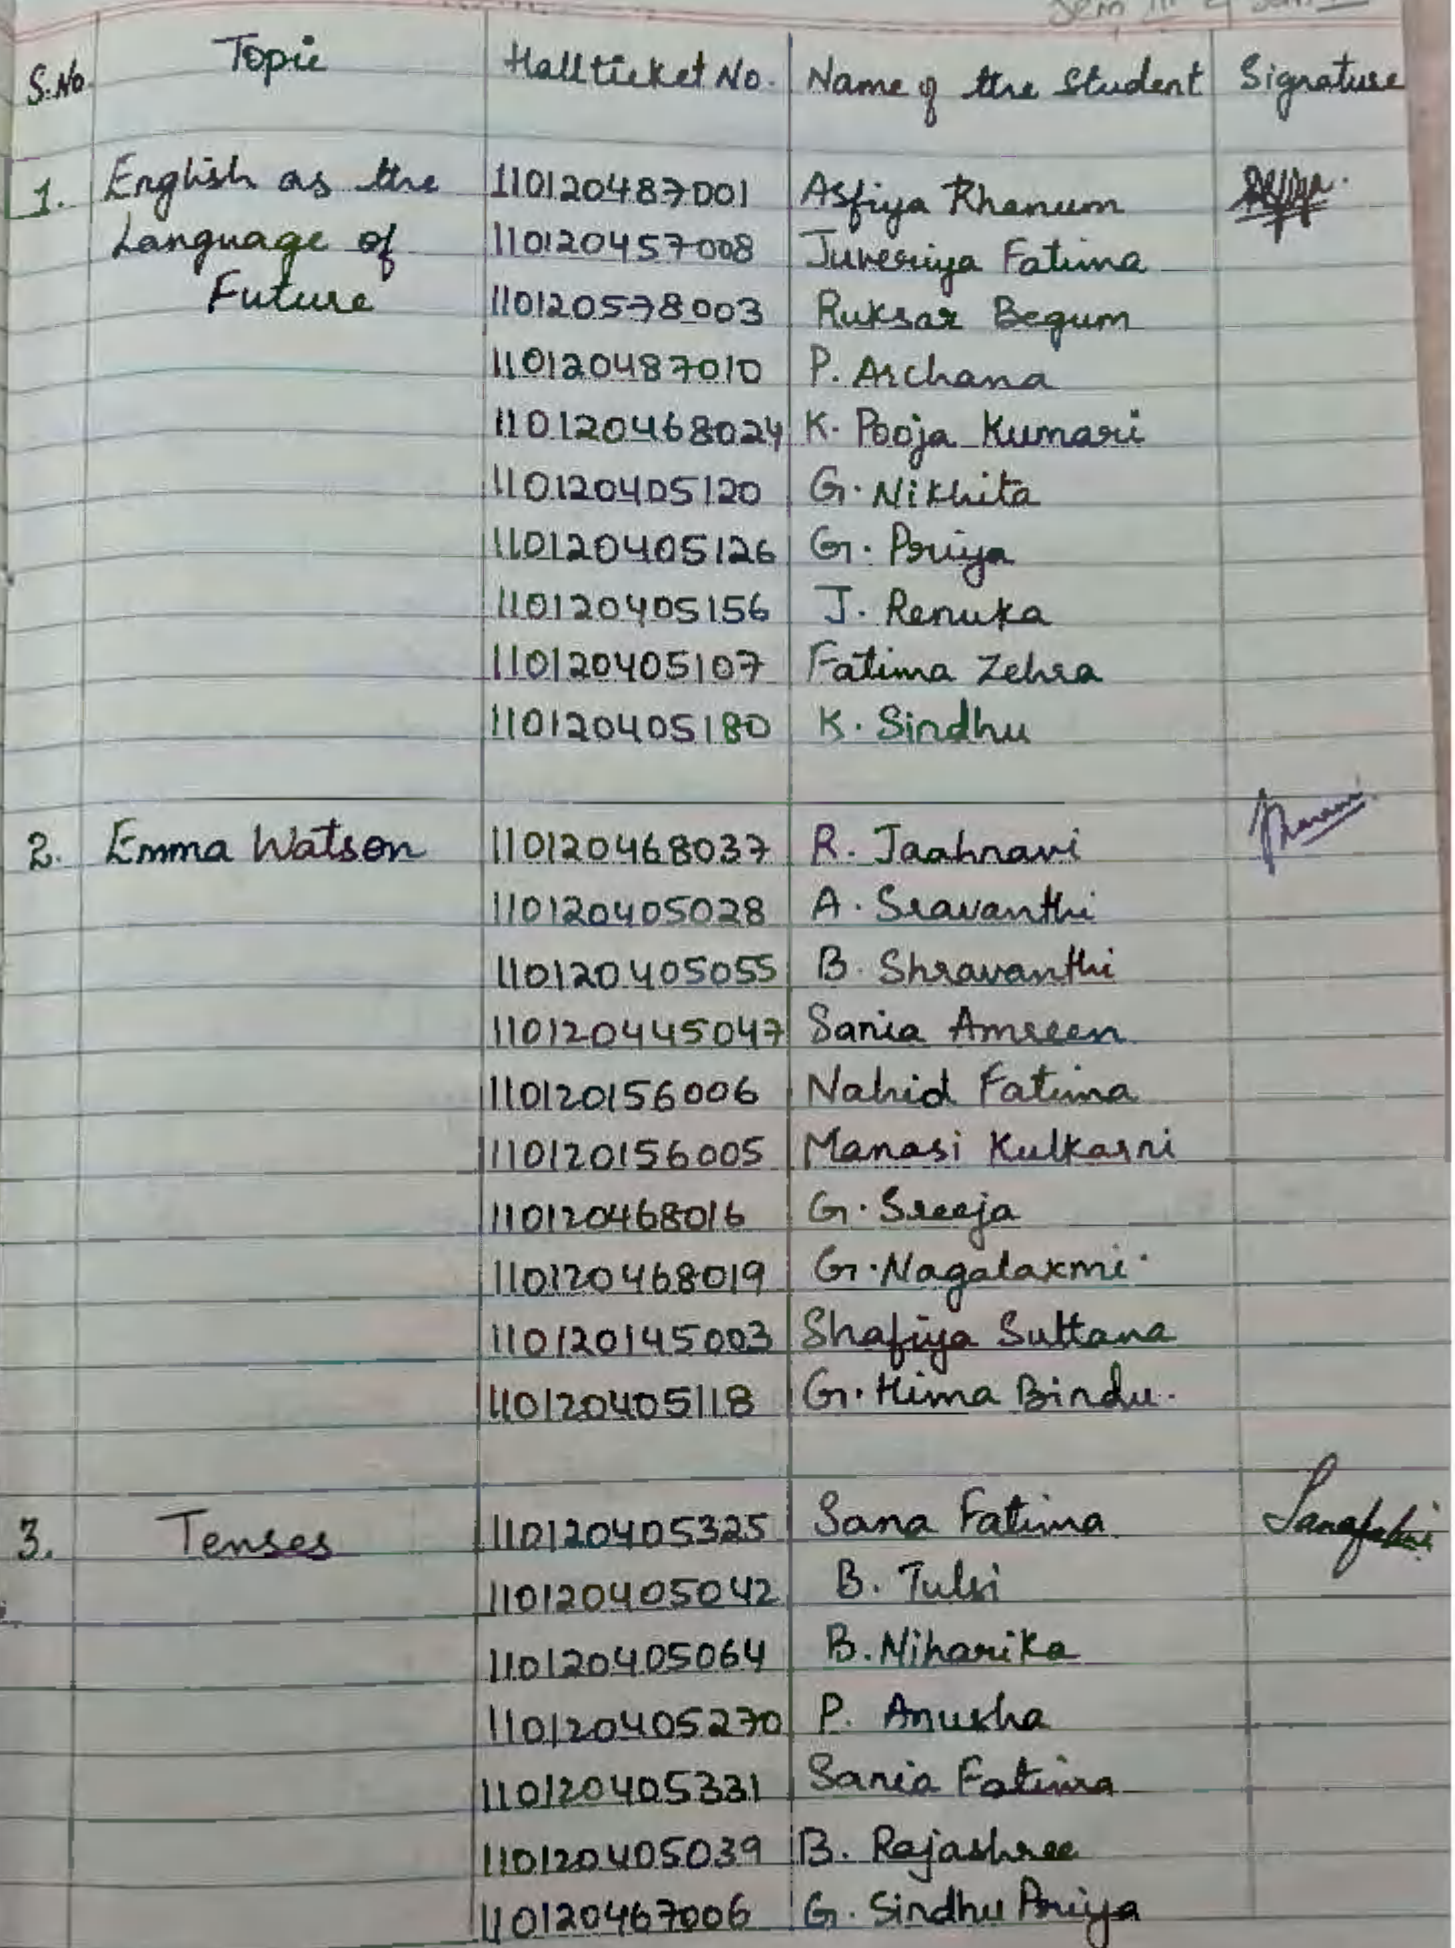 Sem III & Sem I
S.No. Topic Hallticket No. Name of the Student Signature
1. English as the 110120487001 Asfiya Khanum
Language of 110120457008 Juveriya Fatima
Future 110120578003 Ruksar Begum
110120487010 P. Archana
110120468024 K. Pooja Kumari
110120405120 G. Nikhita
110120405126 G. Priya
110120405156 J. Renuka
110120405107 Fatima Zehra
110120405180 K. Sindhu
2. Emma Watson 110120468037 R. Jaahnavi
110120405028 A. Sravanthi
110120405055 B. Shravanthi
110120445047 Sania Amreen
110120156006 Nahid Fatima
110120156005 Manasi Kulkarni
110120468016 G. Sreeja
110120468019 G. Nagalaxmi.
110120145003 Shafiya Sultana
110120405118 G. Hima Bindu.
3. Tenses 110120405325 Sana Fatima
110120405042 B. Tulsi
110120405064 B. Niharika
110120405270 P. Anusha
110120405331 Sania Fatima
110120405039 B. Rajashree
110120467006 G. Sindhu Priya